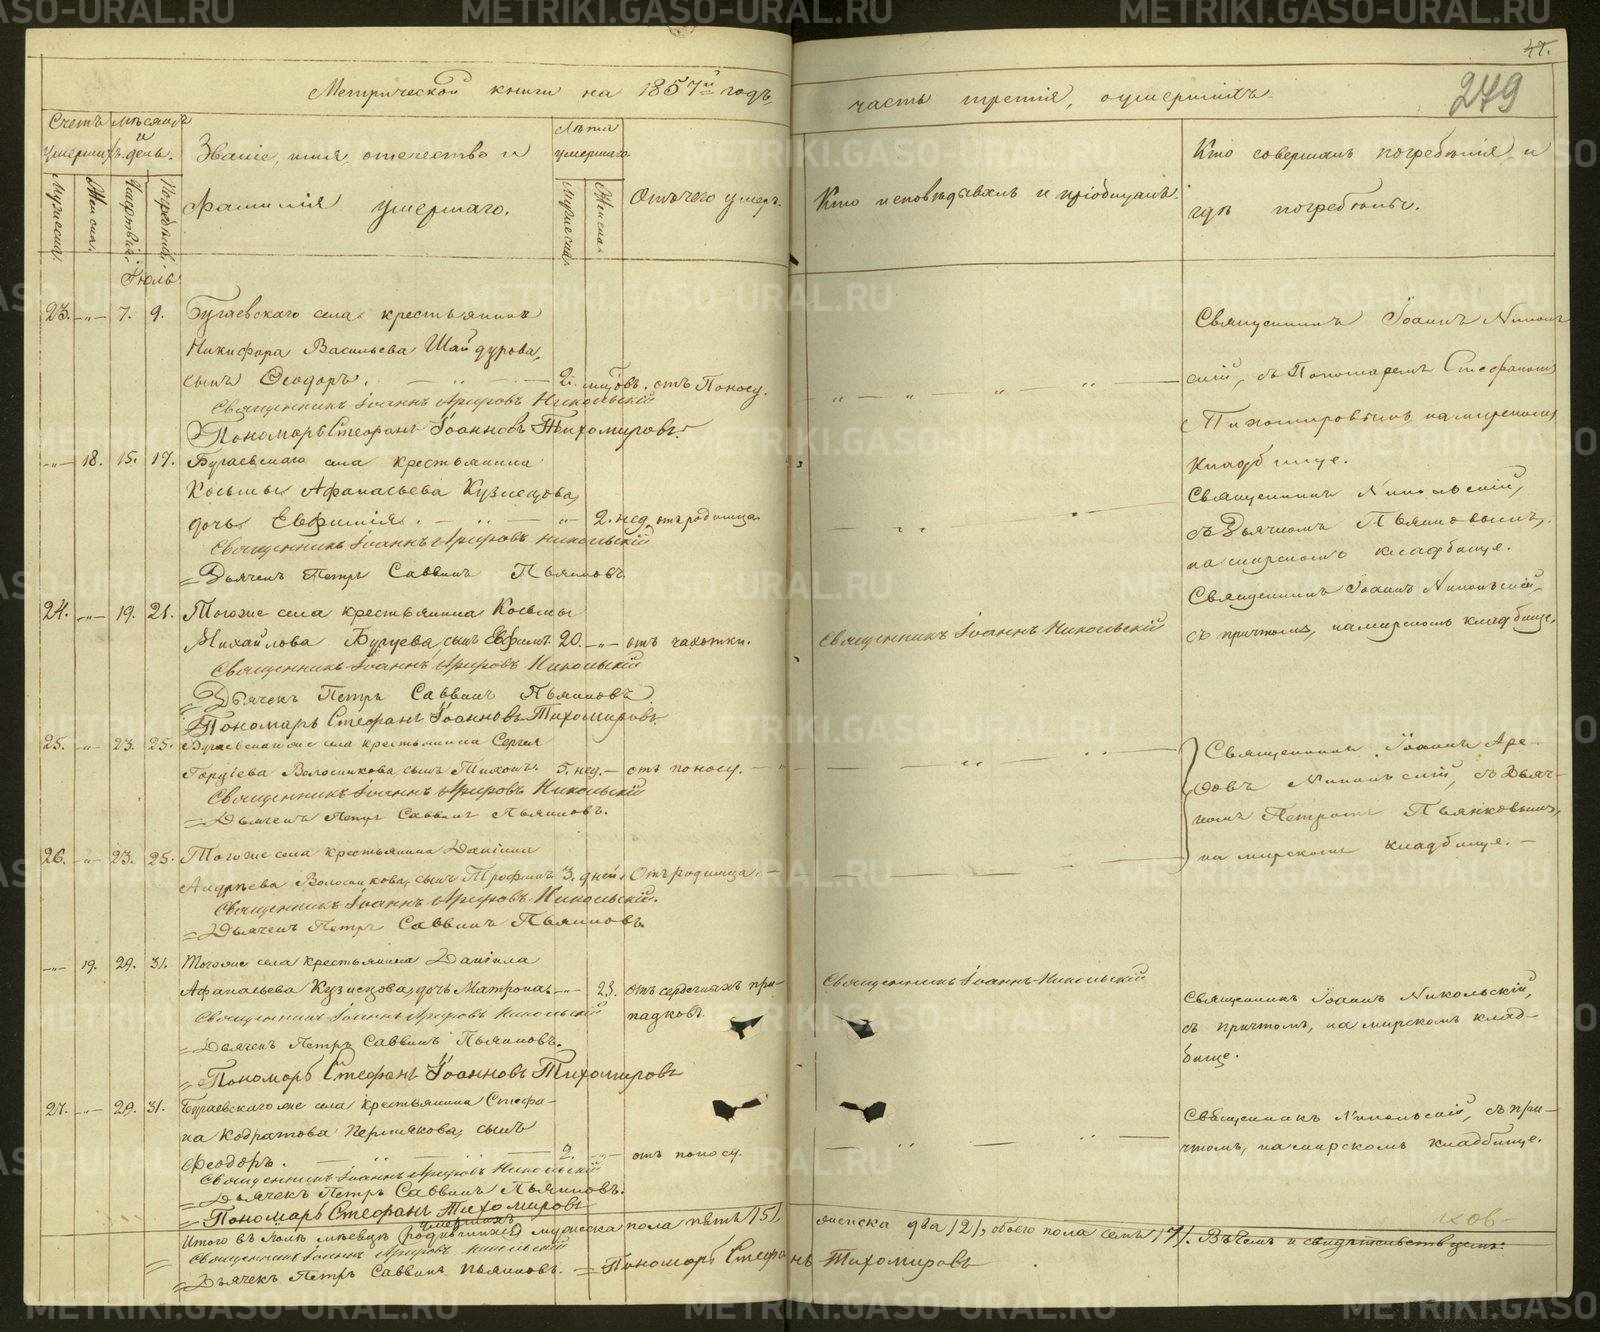 47.
279
Метрической книги на 1857й годъ
часть третія, о умершихъ
Счетъ умершихъ.
Мѣсяцъ и день.
Званіе, имя, отечество и фамилія умершаго.
Лѣта умершаго
Отъ чего умеръ.
Кто исповѣдывалъ и пріобщалъ.
Кто совершалъ погребеніе и гдѣ погребены.
Мужеска.
Женска.
Смерти.
Погребенія.
Мужеска.
Женска.
Іюль
23. -„- 7. 9. Бугаевскаго села крестьянина
Никифора Васильева Шайдурова,
сынъ Ѳеодоръ. 2. мцовъ. отъ Поносу.
Священникъ Іоаннъ Арефовъ Никольскій
Пономарь Стефанъ Іоанновъ Тихомировъ.
Священникъ Іоаннъ Николь
скій, съ Пономаремъ Стефаномъ
Тихомировымъ на мирскомъ
кладбище.
-„- 18. 15. 17. Бугаевскаго села крестьянина
Косьмы Афанасьева Кузнецова,
дочь Евфимія. 2. нед. отъ родимца.
Священникъ Іоаннъ Арефовъ Никольскій
Дьячекъ Петръ Саввинъ Пьянковъ
Священникъ Никольскій,
съ Дьячкомъ Пьянковымъ,
на мирскомъ кладбище.
24. -„- 19. 21. Тогоже села крестьянина Косьмы
Михайлова Бурцева, сынъ Евфимъ. 20. -„- отъ чахотки.
Священникъ Іоаннъ Арефовъ Никольскій
Дьячекъ Петръ Саввинъ Пьянковъ
Пономарь Стефанъ Іоанновъ Тихомировъ.
Священникъ Іоаннъ Никольскій
Священникъ Іоаннъ Никольскій,
съ причтомъ, на мирскомъ кладбище,
25. -„- 23. 25. Бугаевскагоже села крестьянина Сергея
Гордіева Волосникова, сынъ Тихонъ. 5. нед. отъ поносу.
Священникъ Іоаннъ Арефовъ Никольскій
Дьячекъ Петръ Саввинъ Пьянковъ.
Священникъ Іоаннъ Аре-
фовъ Никольскій, съ Дьяч-
комъ Петромъ Пьянковымъ,
на мирскомъ кладбище.
26. -„- 23. 25. Тогоже села крестьянина Даніила
Андреева Волосникова, сынъ Трофимъ 3. дней. Отъ родимца.
Священникъ Іоаннъ Арефовъ Никольскій.
Дьячекъ Петръ Саввинъ Пьянковъ.
-„- 19. 29. 31. Тогоже села крестьянина Даніила
Афанасьева Кузнецова, дочь Матрона. -„- 23. отъ сердечныхъ при-
падковъ.
Священникъ Іоаннъ Арефовъ Никольскій
Дьячекъ Петръ Саввинъ Пьянковъ.
Пономарь Стефанъ Іоанновъ Тихомировъ
Священникъ Іоаннъ Никольскій
Священникъ Іоаннъ Никольскій,
съ причтомъ, на мирскомъ клад-
бище.
27. -„- 29. 31. Бугаевскагоже села крестьянина Стефа-
на Кодратова Пермякова, сынъ
Ѳеодоръ. 2. отъ поносу.
Священникъ Іоаннъ Арефовъ Никольскій
Дьячекъ Петръ Саввинъ Пьянковъ.
Пономарь Стефанъ Тихомировъ
Священникъ Никольскій, съ при-
чтомъ, на мирскомъ кладбище.
Итого въ Іюлѣ мѣсяцѣ умершихъ мужеска пола пять /5/, женска два /2/, обоего пола семь /7/. Въ чемъ и свидѣтельствуемъ:
Священникъ Іоаннъ Арефовъ Никольскій
Дьячекъ Петръ Саввинъ Пьянковъ. Пономарь Стефанъ Тихомировъ
METRIKI.GASO-URAL.RU